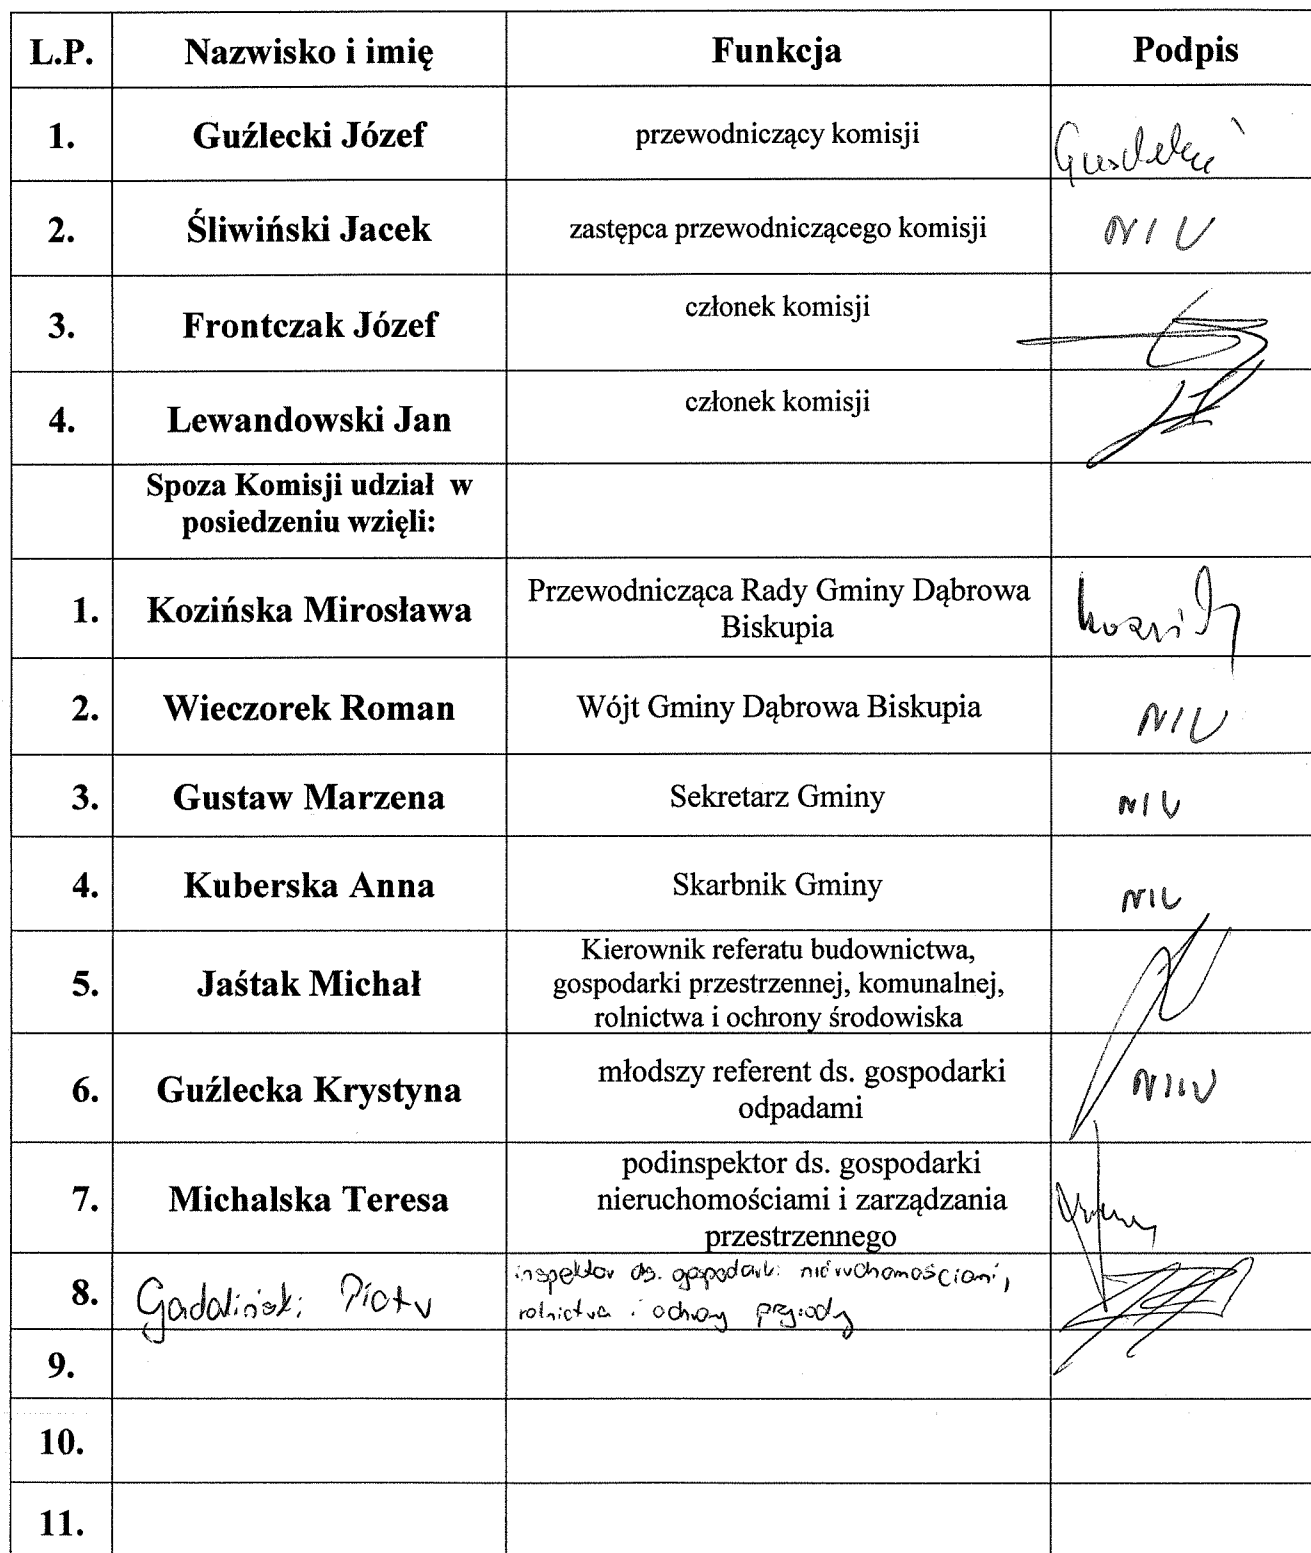 L.P. Nazwisko i imię Funkcja Podpis
1. Guźlecki Józef przewodniczący komisji
2. Śliwiński Jacek zastępca przewodniczącego komisji
3. Frontczak Józef członek komisji
4. Lewandowski Jan członek komisji
Spoza Komisji udział w
posiedzeniu wzięli:
1. Kozińska Mirosława Przewodnicząca Rady Gminy Dąbrowa
Biskupia
2. Wieczorek Roman Wójt Gminy Dąbrowa Biskupia
3. Gustaw Marzena Sekretarz Gminy
4. Kuberska Anna Skarbnik Gminy
5. Jaśtak Michał Kierownik referatu budownictwa,
gospodarki przestrzennej, komunalnej,
rolnictwa i ochrony środowiska
6. Guźlecka Krystyna młodszy referent ds. gospodarki
odpadami
7. Michalska Teresa podinspektor ds. gospodarki
nieruchomościami i zarządzania
przestrzennego
8. Gadaliński Piotr inspektor ds. gospodarki nieruchomościami,
rolnictwa i ochrony przyrody
9.
10.
11.